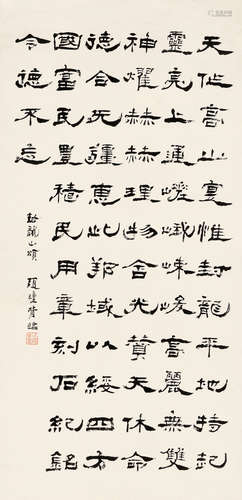 天作高山寔惟封龍平地特起
靈亮上通嵯峨崍峻高麗無雙
神燿赫赫理物含光贊天休命
德合无疆惠此邦域以綏四方
國富民豊穡民用章刻石紀銘
令德不忘
封龍山頌 趙臨